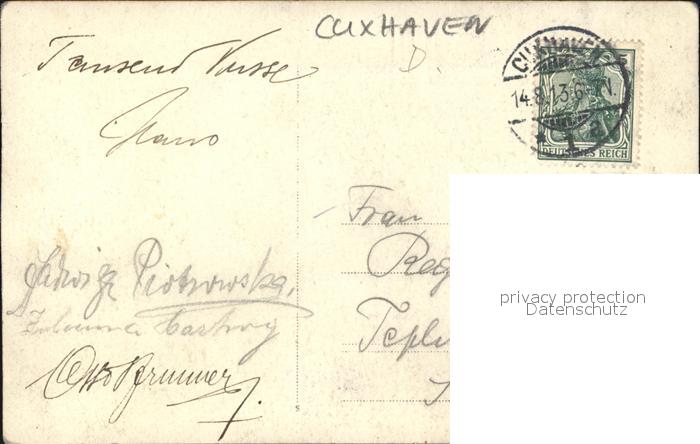 CUXHAVEN
D.
Tausend Küsse
CUXHAVEN
14.8.13.6-7N.
* 1 a
5
DEUTSCHES REICH
Hans
Frau
Jadwiga Piotrowska,
Otto Brunner
privacy protection
Datenschutz